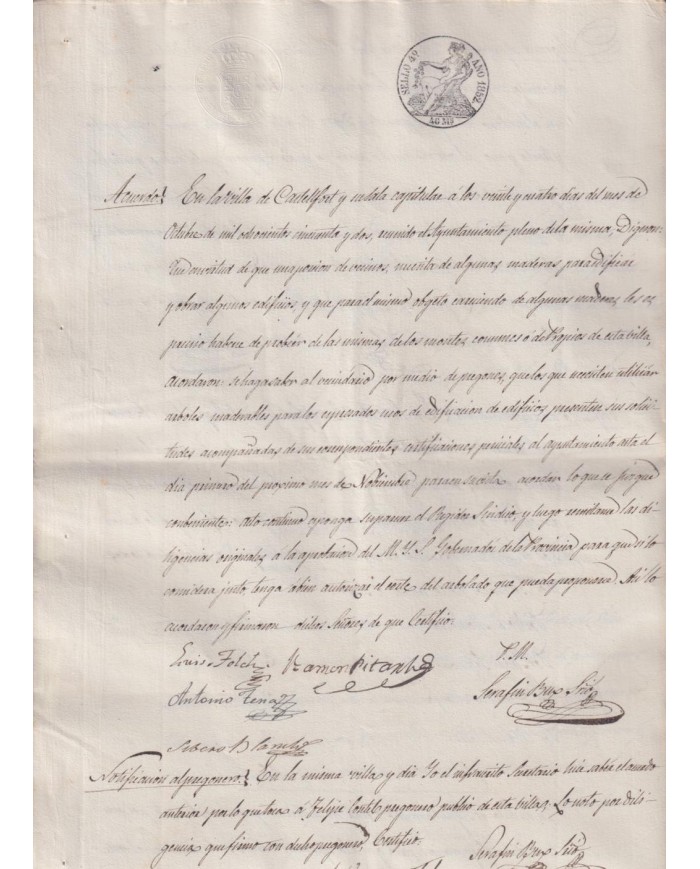 SELLO 4º AÑO 1852
40 Ms
Acuerdo. En la villa de Castellfort y su sala capitular á los veinte y cuatro dias del mes de
Octubre de mil ochocientos cincuenta y dos, reunido el Ayuntamiento pleno de la misma, Digeron:
Que en virtud de que una porcion de vecinos, necesita de algunas maderas para edificar
y obrar algunos edificios, y que para el mismo objeto careciendo de algunas maderas, les es
preciso haberse de probeer de las mismas de los montes comunes ó de Propios de esta villa,
acordaron: se haga saber al vecindario por medio de pregones, que los que necesiten utilizar
arboles maderables para los espresados usos de edificacion de edificios presenten sus solici-
tudes acompañadas de sus correspondientes certificaciones periciales al ayuntamiento asta el
dia primero del procsimo mes de Nobiembre para en su vista acordar lo que se juzgue
combeniente: acto continuo esponga su parecer el Regidor Sindico, y luego remitanse las di-
ligencias originales a la aprobacion del M. Y. S. Gobernador de la Provincia para que si lo
considera justo, tenga á bien autorizar el corte del arbolado que pueda proponerse. Asi lo
acordaron y firmaron dichos Señores de que Certifico.
Luis Folch Ramon Pitarch P. M.
Antonio Tena Serafin Bux Srio
Notificacion al pregonero. En la misma villa y dia Yo el infrascrito Secretario hice saber el acuerdo
anterior por lo que toca á Felipe pregonero publico de esta villa, Lo noto por dili-
gencia que firmo con dicho pregonero, Certifico.
Serafin Bux Srio